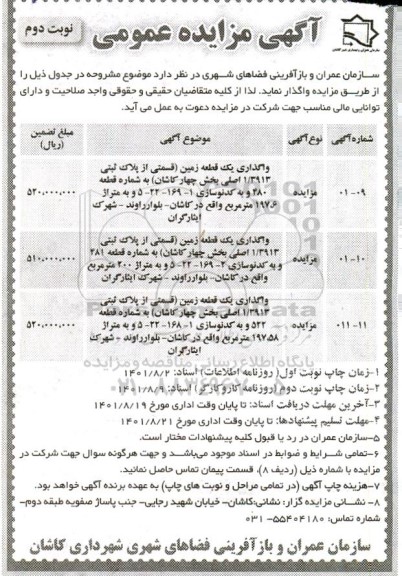 آگهی مزایده عمومی
نوبت دوم
سازمان عمران و بازآفرینی فضاهای شهری در نظر دارد موضوع مشروحه در جدول ذیل را
از طریق مزایده واگذار نماید. لذا از کلیه متقاضیان حقیقی و حقوقی واجد صلاحیت و دارای
توانایی مالی مناسب جهت شرکت در مزایده دعوت به عمل می آید.
شماره آگهی نوع آگهی موضوع آگهی مبلغ تضمین (ریال)
۰۱-۰۹ مزایده
واگذاری یک قطعه زمین (قسمتی از پلاک ثبتی
۱/۳۹۱۳ اصلی بخش چهار کاشان) به شماره قطعه
۲۸۰ و به کدنوسازی ۱-۱۶۹-۲۲-۵ و به متراژ
۱۹۷.۶ مترمربع واقع در کاشان- بلوار راوند - شهرک
ایثارگران
۵۲۰,۰۰۰,۰۰۰
۰۱-۱۰ مزایده
واگذاری یک قطعه زمین (قسمتی از پلاک ثبتی
۱/۳۹۱۳ اصلی بخش چهار کاشان) به شماره قطعه ۲۸۱
و به کدنوسازی ۲-۱۶۹-۲۲-۵ و به متراژ ۲۰۰ مترمربع
واقع در کاشان- بلوار راوند - شهرک ایثارگران
۵۱۰,۰۰۰,۰۰۰
۰۱-۱۱ مزایده
واگذاری یک قطعه زمین (قسمتی از پلاک ثبتی
۱/۳۹۱۳ اصلی بخش چهار کاشان) به شماره قطعه
۵۲۲ و به کدنوسازی ۱-۱۶۸-۲۲-۵ و به متراژ
۱۹۷.۵۸ مترمربع واقع در کاشان- بلوار راوند - شهرک
ایثارگران
۵۲۰,۰۰۰,۰۰۰
۱-زمان چاپ نوبت اول( روزنامه اطلاعات) اسناد: ۱۴۰۱/۸/۲
۲-زمان چاپ نوبت دوم(روزنامه کاروکارگر) اسناد: ۱۴۰۱/۸/۹
۳-آخرین مهلت دریافت اسناد: تا پایان وقت اداری مورخ ۱۴۰۱/۸/۱۹
۴-مهلت تسلیم پیشنهادها: تا پایان وقت اداری مورخ ۱۴۰۱/۸/۲۱
۵-سازمان عمران در رد یا قبول کلیه پیشنهادات مختار است.
۶-تمامی شرایط و ضوابط در اسناد موجود می‌باشد و جهت هرگونه سوال جهت شرکت در
مزایده با شماره ذیل (ردیف ۸)، قسمت پیمان تماس حاصل نمائید.
۷-هزینه چاپ آگهی (در تمامی مراحل و نوبت های چاپ) به عهده برنده آگهی خواهد بود.
۸- نشانی مزایده گزار: نشانی:کاشان- خیابان شهید رجایی- جنب پاساژ صفویه طبقه دوم-
شماره تماس: ۵۵۴۰۴۱۸۰-۰۳۱
سازمان عمران و بازآفرینی فضاهای شهری شهرداری کاشان